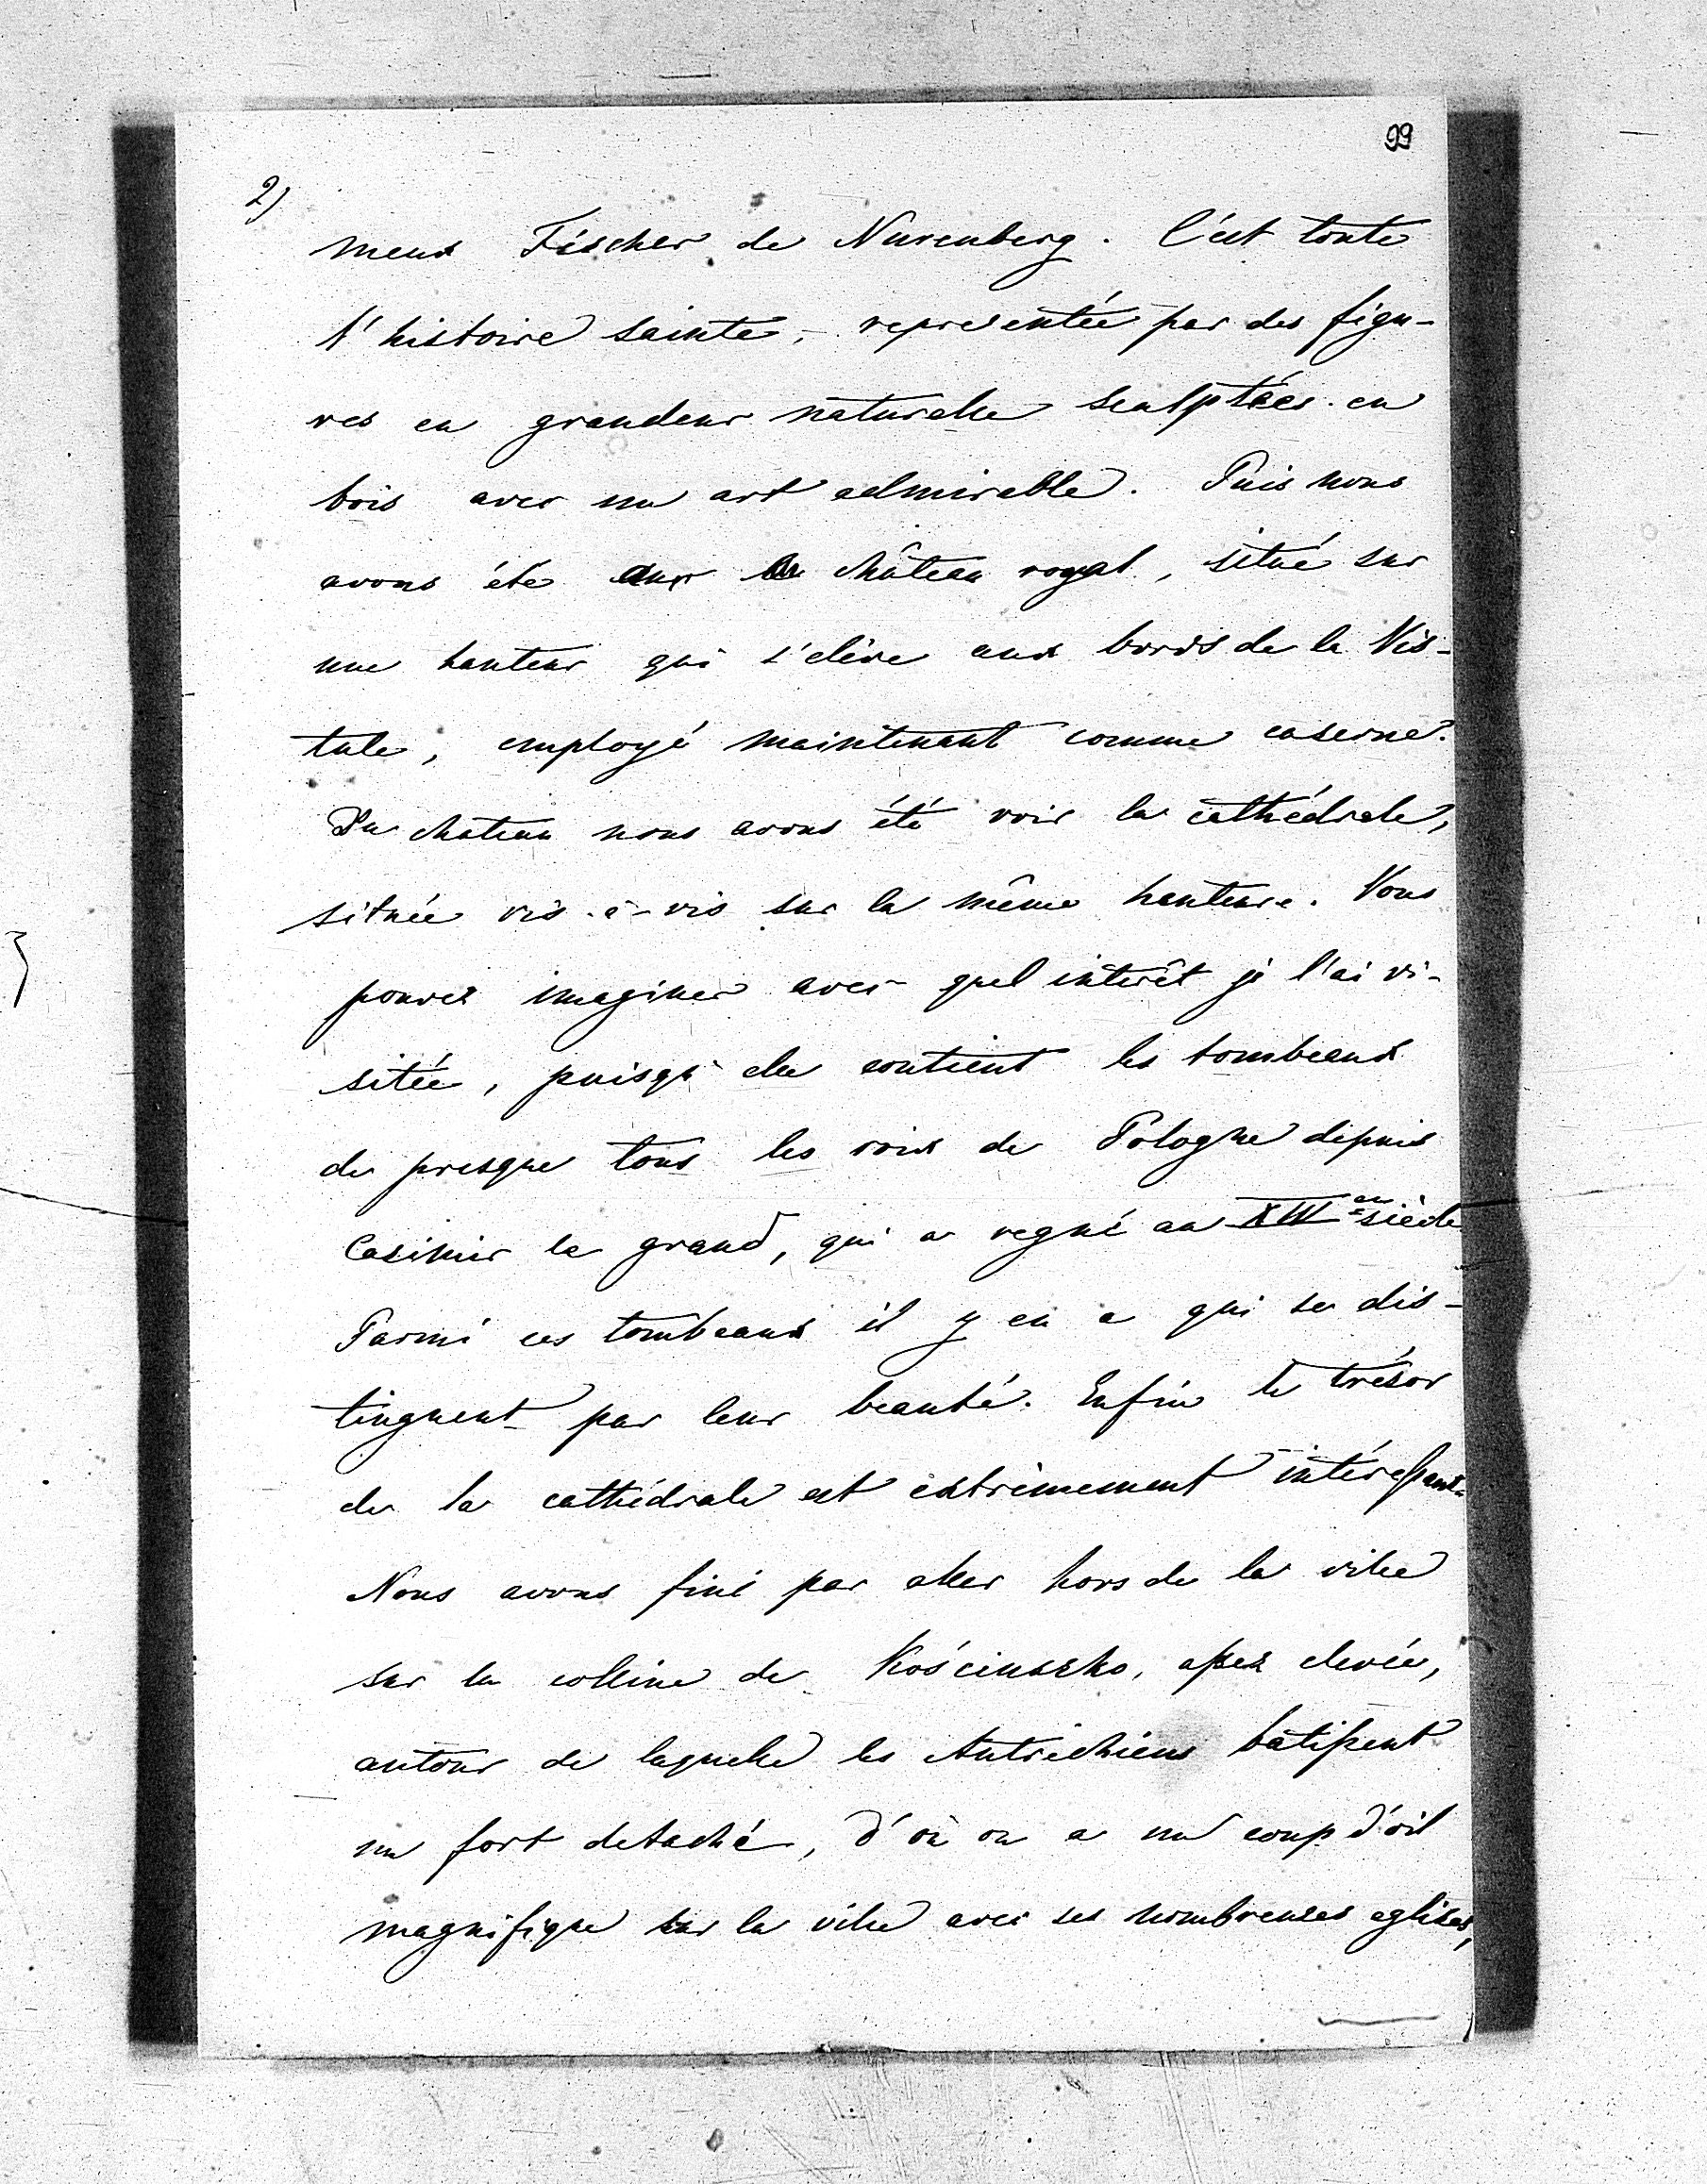 99
2)
meux Fischer de Nurenberg. C'est toute
l'histoire sainte, representée par des figu-
res en grandeur naturelle sculptées en
bois avec un art admirable. Puis nous
avons été le château royal, situé sur
une hauteur qui s'elève aux bords de la Vis-
tule, employé maintenant comme caserne.
Du chateau nous avons été voir la cathédrale,
située vis-à-vis sur la même hauteur. Vous
pouvez imaginer avec quel interêt je l'ai vi-
sitée, puisqu'elle contient les tombeaux
de presque tous les rois de Pologne depuis
Casimir le grand, qui a regné au siècle
Parmi ces tombeaux il y en a qui se dis-
tinguent par leur beauté. Enfin le trésor
de la cathédrale est extrêmement intéressant.
Nous avons fini par aller hors de la ville
sur la colline de Kościuszko, assez elevée,
autour de laquelle les Autrichiens batissent
un fort detaché, d'où on a un coup d'œil
magnifique sur la ville avec ses nombreuses eglises,